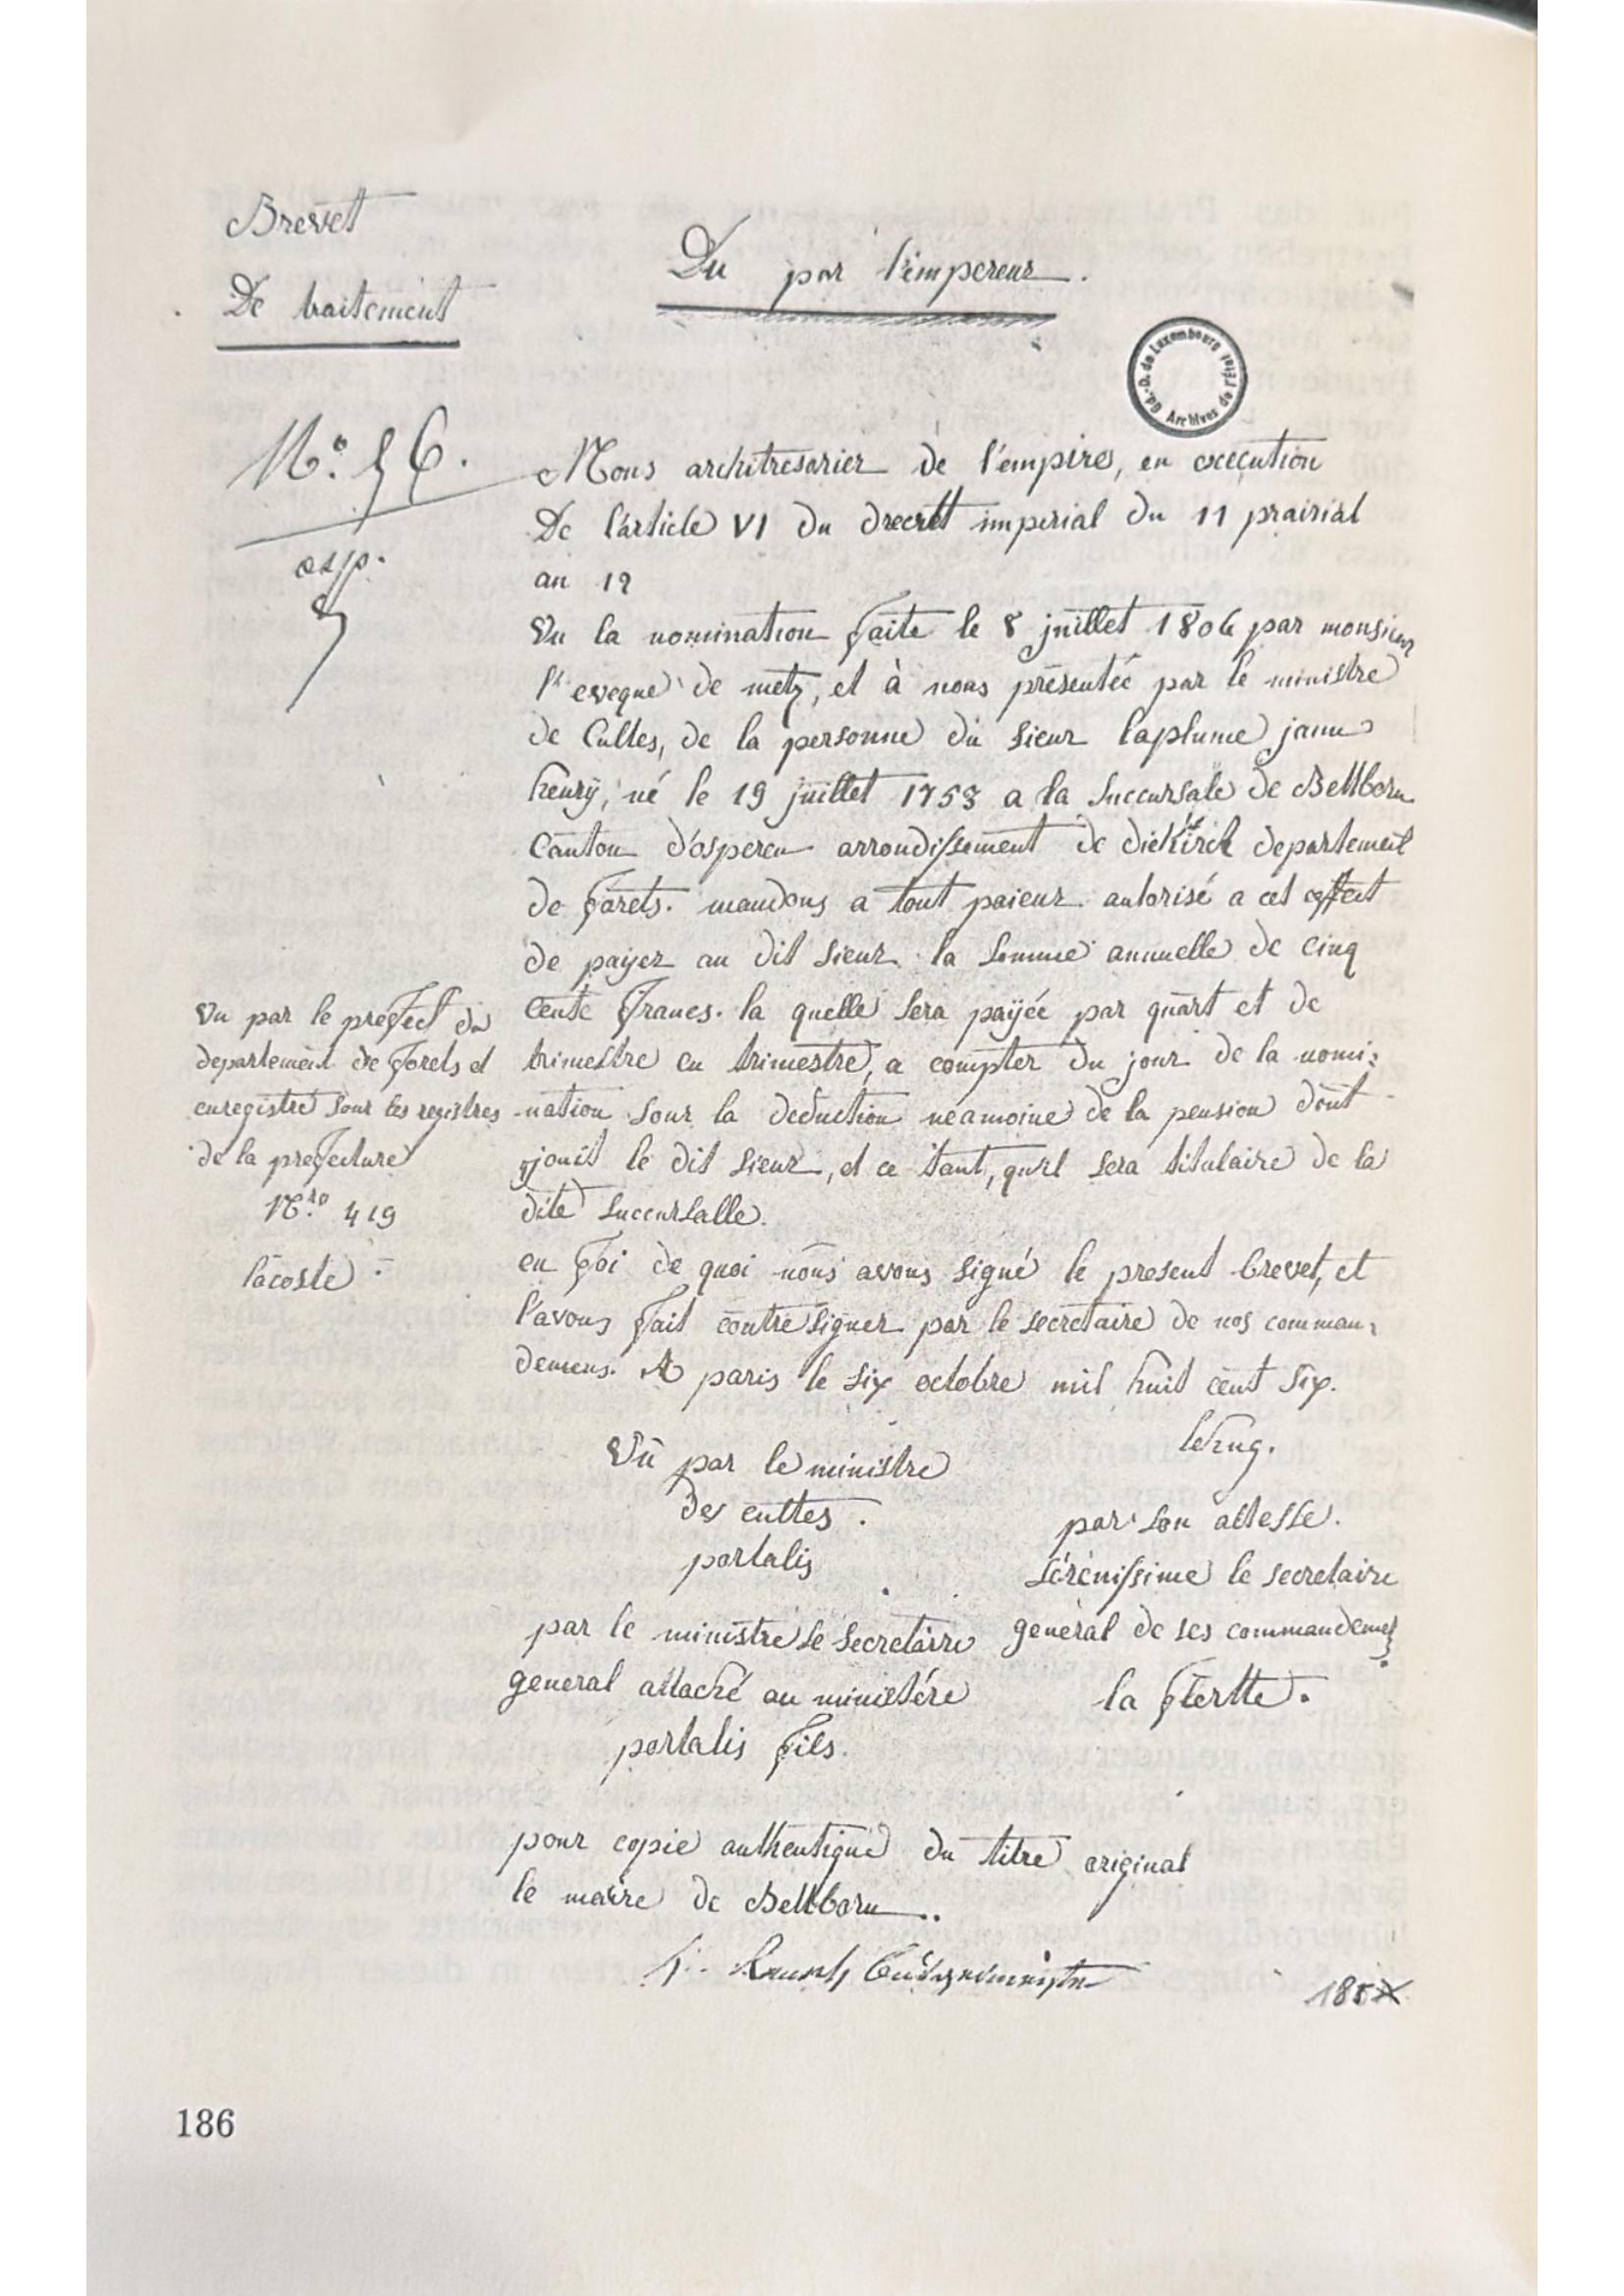 Brevet
De traitement
Du par l'empereur.
Gd.-D. de Luxembourg Archives de l'État
N.° 56.
osp.
Nous architresorier de l'empire, en execution
De l'article VI du decret imperial du 11 prairial
an 12
Vu la nomination faite le 8 juillet 1806 par monsieur
l'eveque de metz, et à nous présentée par le ministre
de Cultes, de la personne du sieur laplume jean
henrÿ, né le 19 juillet 1753 a la succursale de Bettborn
Canton d'osperen arrondissement de diekirch departement
de forets. mandons a tout paieur autorisé a cet effect
de payer au dit sieur la somme annuelle de cinq
cents francs. la quelle sera payée par quart et de
trimestre en trimestre, a compter du jour de la nomi:
nation sour la deduction neamoine de la pension dont
jouit le dit sieur, et ce tant, qu'il sera titulaire de la
dite succursalle.
en foi de quoi nous avons signé le present brevet, et
l'avons fait contre signer par le secretaire de nos comman:
demens. A paris le six octobre mil huit cent six.
Vu par le prefect du
departement de forets et
enregistré sour les registres
de la prefecture
N.ro 419
lacoste
lebrug.
Vû par le ministre
des cultes.
portalis
par son altesse.
sérénissime le secretaire
general de ses commandemes
la flertte.
par le ministre le secretaire
general attaché au ministére
portalis fils.
pour copie authentique du titre original
le maire de Bettborn..
185
186